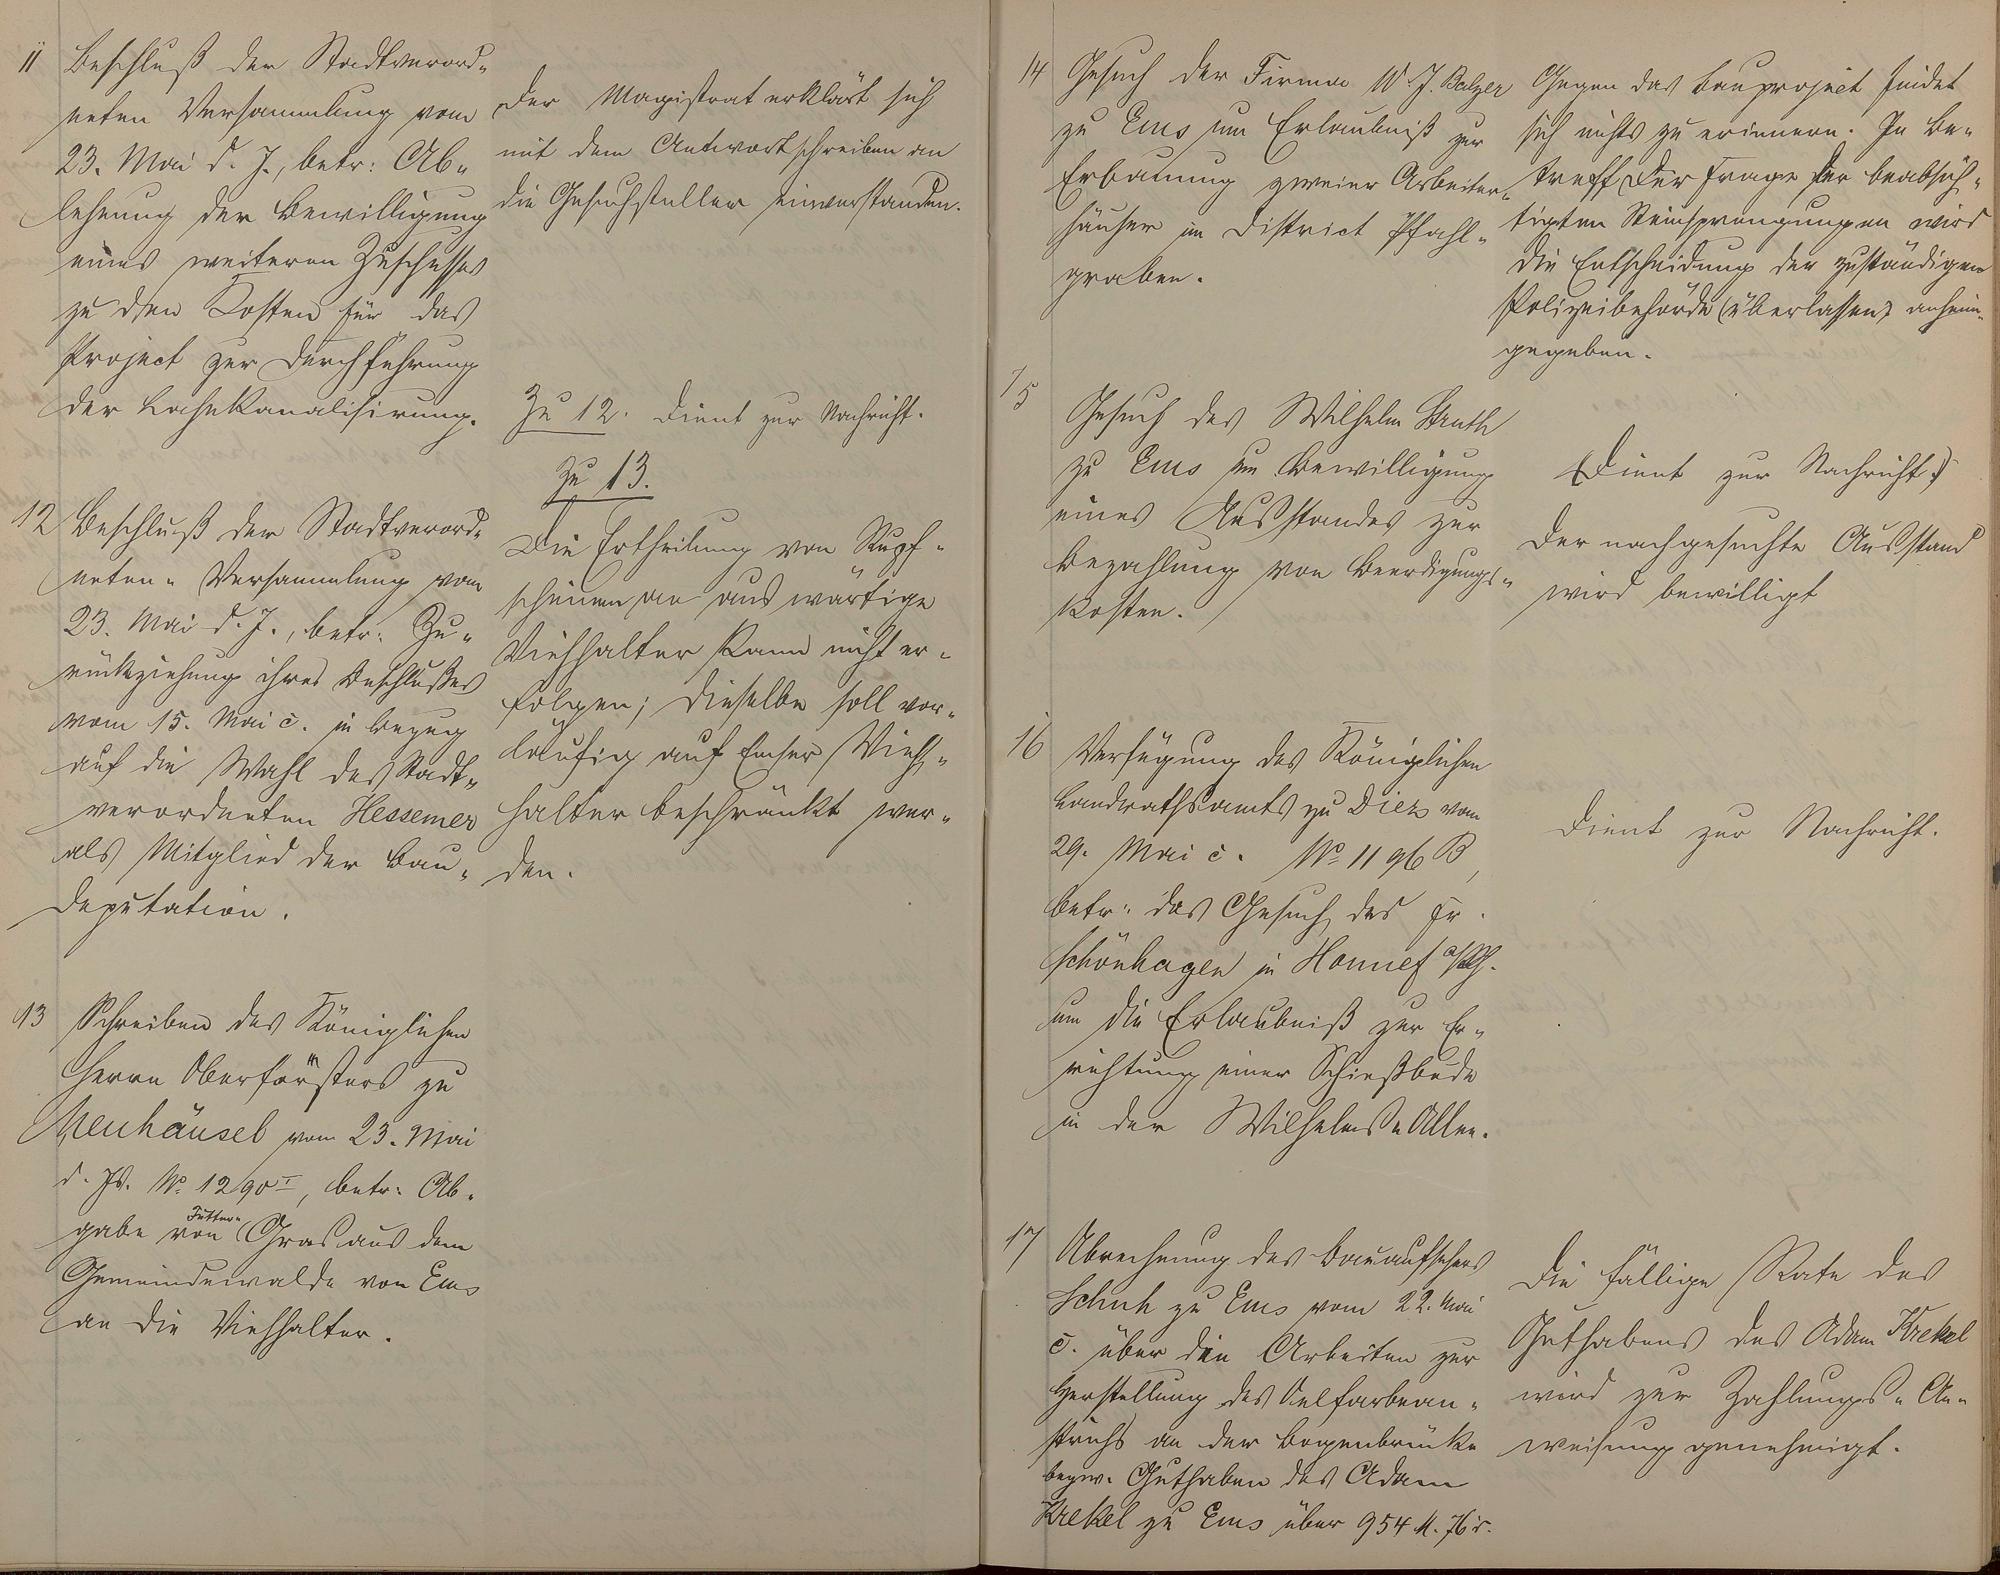 11 Beschluß der Stadtverord-
neten Versammlung vom
23. Mai d. J., betr: Ab-
lehnung der Bewilligung
eines weiteren Zuschusses
zu den Kosten für das
Project zur Durchführung
der Lahnkanalisirung.
Der Magistrat erklärt sich
mit dem Antwortschreiben an
die Gesuchsteller einverstanden.
12 Beschluß der Stadtverord-
neten- Versammlung vom
23. Mai d. J., betr. Zu-
rückziehung ihres Beschlußes
vom 15. Mai c. in bezug
auf die Wahl des Stadt-
verordneten Hessemer
als Mitglied der Bau-
deputation.
Zu 12. Dient zur Nachricht.
13 Schreiben des Königlichen
Herrn Oberförsters zu
Neuhäusel vom 23. Mai
d. Js. No 1290 I, betr. Ab-
gabe von Futter- Gras aus dem
Gemeindewalde von Ems
an die Viehhalter.
Zu 13.
Die Ertheilung von Rupf-
scheinen an auswärtige
Viehhalter kann nicht er-
folgen; dieselbe soll vor-
läufig auf Emser Vieh-
halter beschränkt wer-
den.
14 Gesuch der Firma W. J. Balzer
zu Ems um Erlaubniß zur
Erbauung zweier Arbeiter-
häuser im District Pfahl-
graben.
Gegen das Bauproject findet
sich nichts zu erinnern. In Be-
treff der Frage der beabsich-
tigten Steinsprengungen wird
die Entscheidung der zuständigen
Polizeibehörde (überlassen) anheim-
gegeben.
15 Gesuch des Wilhelm Struth
zu Ems um Bewilligung
eines Ausstandes zur
Bezahlung von Beerdigungs-
kosten.
(Dient zur Nachricht.)
Der nachgesuchte Ausstand
wird bewilligt
16 Verfügung des Königlichen
Landrathsamts zu Diez vom
29. Mai c. No 1196 B,
betr. das Gesuch des Fr.
Schönhagen in Honnef a/Rh.
um die Erlaubniß zur Er-
richtung einer Schießbude
in der Wilhelms-Allee.
Dient zur Nachricht.
17 Abrechnung des Bauaufsehers
Schuh zu Ems vom 22. Mai
c. über die Arbeiten zur
Herstellung des Oelfarbean-
strichs an der Bogenbrücke
bezw. Guthaben des Adam
Krekel zu Ems über 954 M. 76 d.
Die fällige Rate des
Guthabens des Adam Krekel
wird zur Zahlungs-An-
weisung genehmigt.